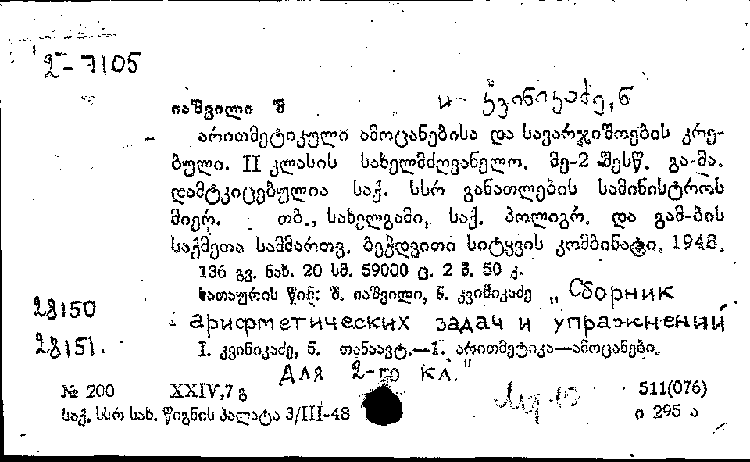 2-7105
იაშვილი შ и კვინიკაძე, ნ
არითმეტიკული ამოცანებისა და სავარჯიშოების კრე-
ბული. II კლასის სახელმძღვანელო. მე-2 შესწ. გა-მა.
დამტკიცებულია საქ. სსრ განათლების სამინისტროს
მიერ. თბ., სახელგამი, საქ. პოლიგრ. და გამ-ბის
საქმეთა სამმართვ. ბეჭდვითი სიტყვის კომბინატი, 1948.
136 გვ. ნახ. 20 სმ. 59000 ც. 2 მ. 50 კ.
სათაურის წინ: შ. იაშვილი, ნ. კვინიკაძე „Сборник
28150
арифметических задач и упражнений
28151.
I. კვინიკაძე, ნ. თანაავტ.—1. არითმეტიკა—ამოცანები.
для 2-го кл."
№ 200 XXIV,7 გ 511(076)
საქ. სსრ სახ. წიგნის პალატა 3/III-48 ი 295 ა